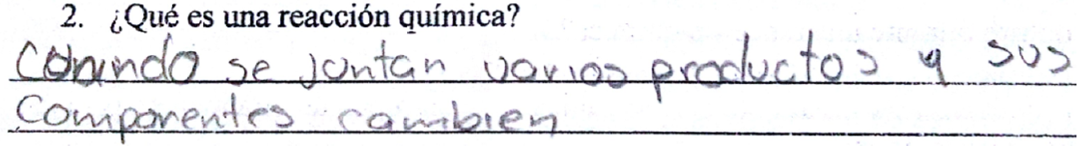 2. ¿Qué es una reacción química?
Cuando se juntan varios productos y sus
componentes cambien